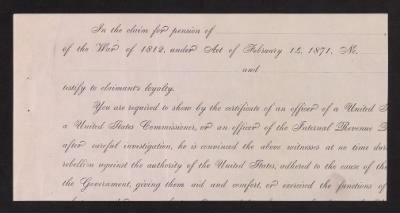 In the claim for pension of
of the War of 1812, under Act of February 14, 1871, No.
and
testify to claimant's loyalty.
You are required to show by the certificate of an officer of a United S
a United States Commissioner, or an officer of the Internal Revenue
after careful investigation, he is convinced the above witnesses at no time dur
rebellion against the authority of the United States, adhered to the cause of the
the Government, giving them aid and comfort, or exercised the functions of